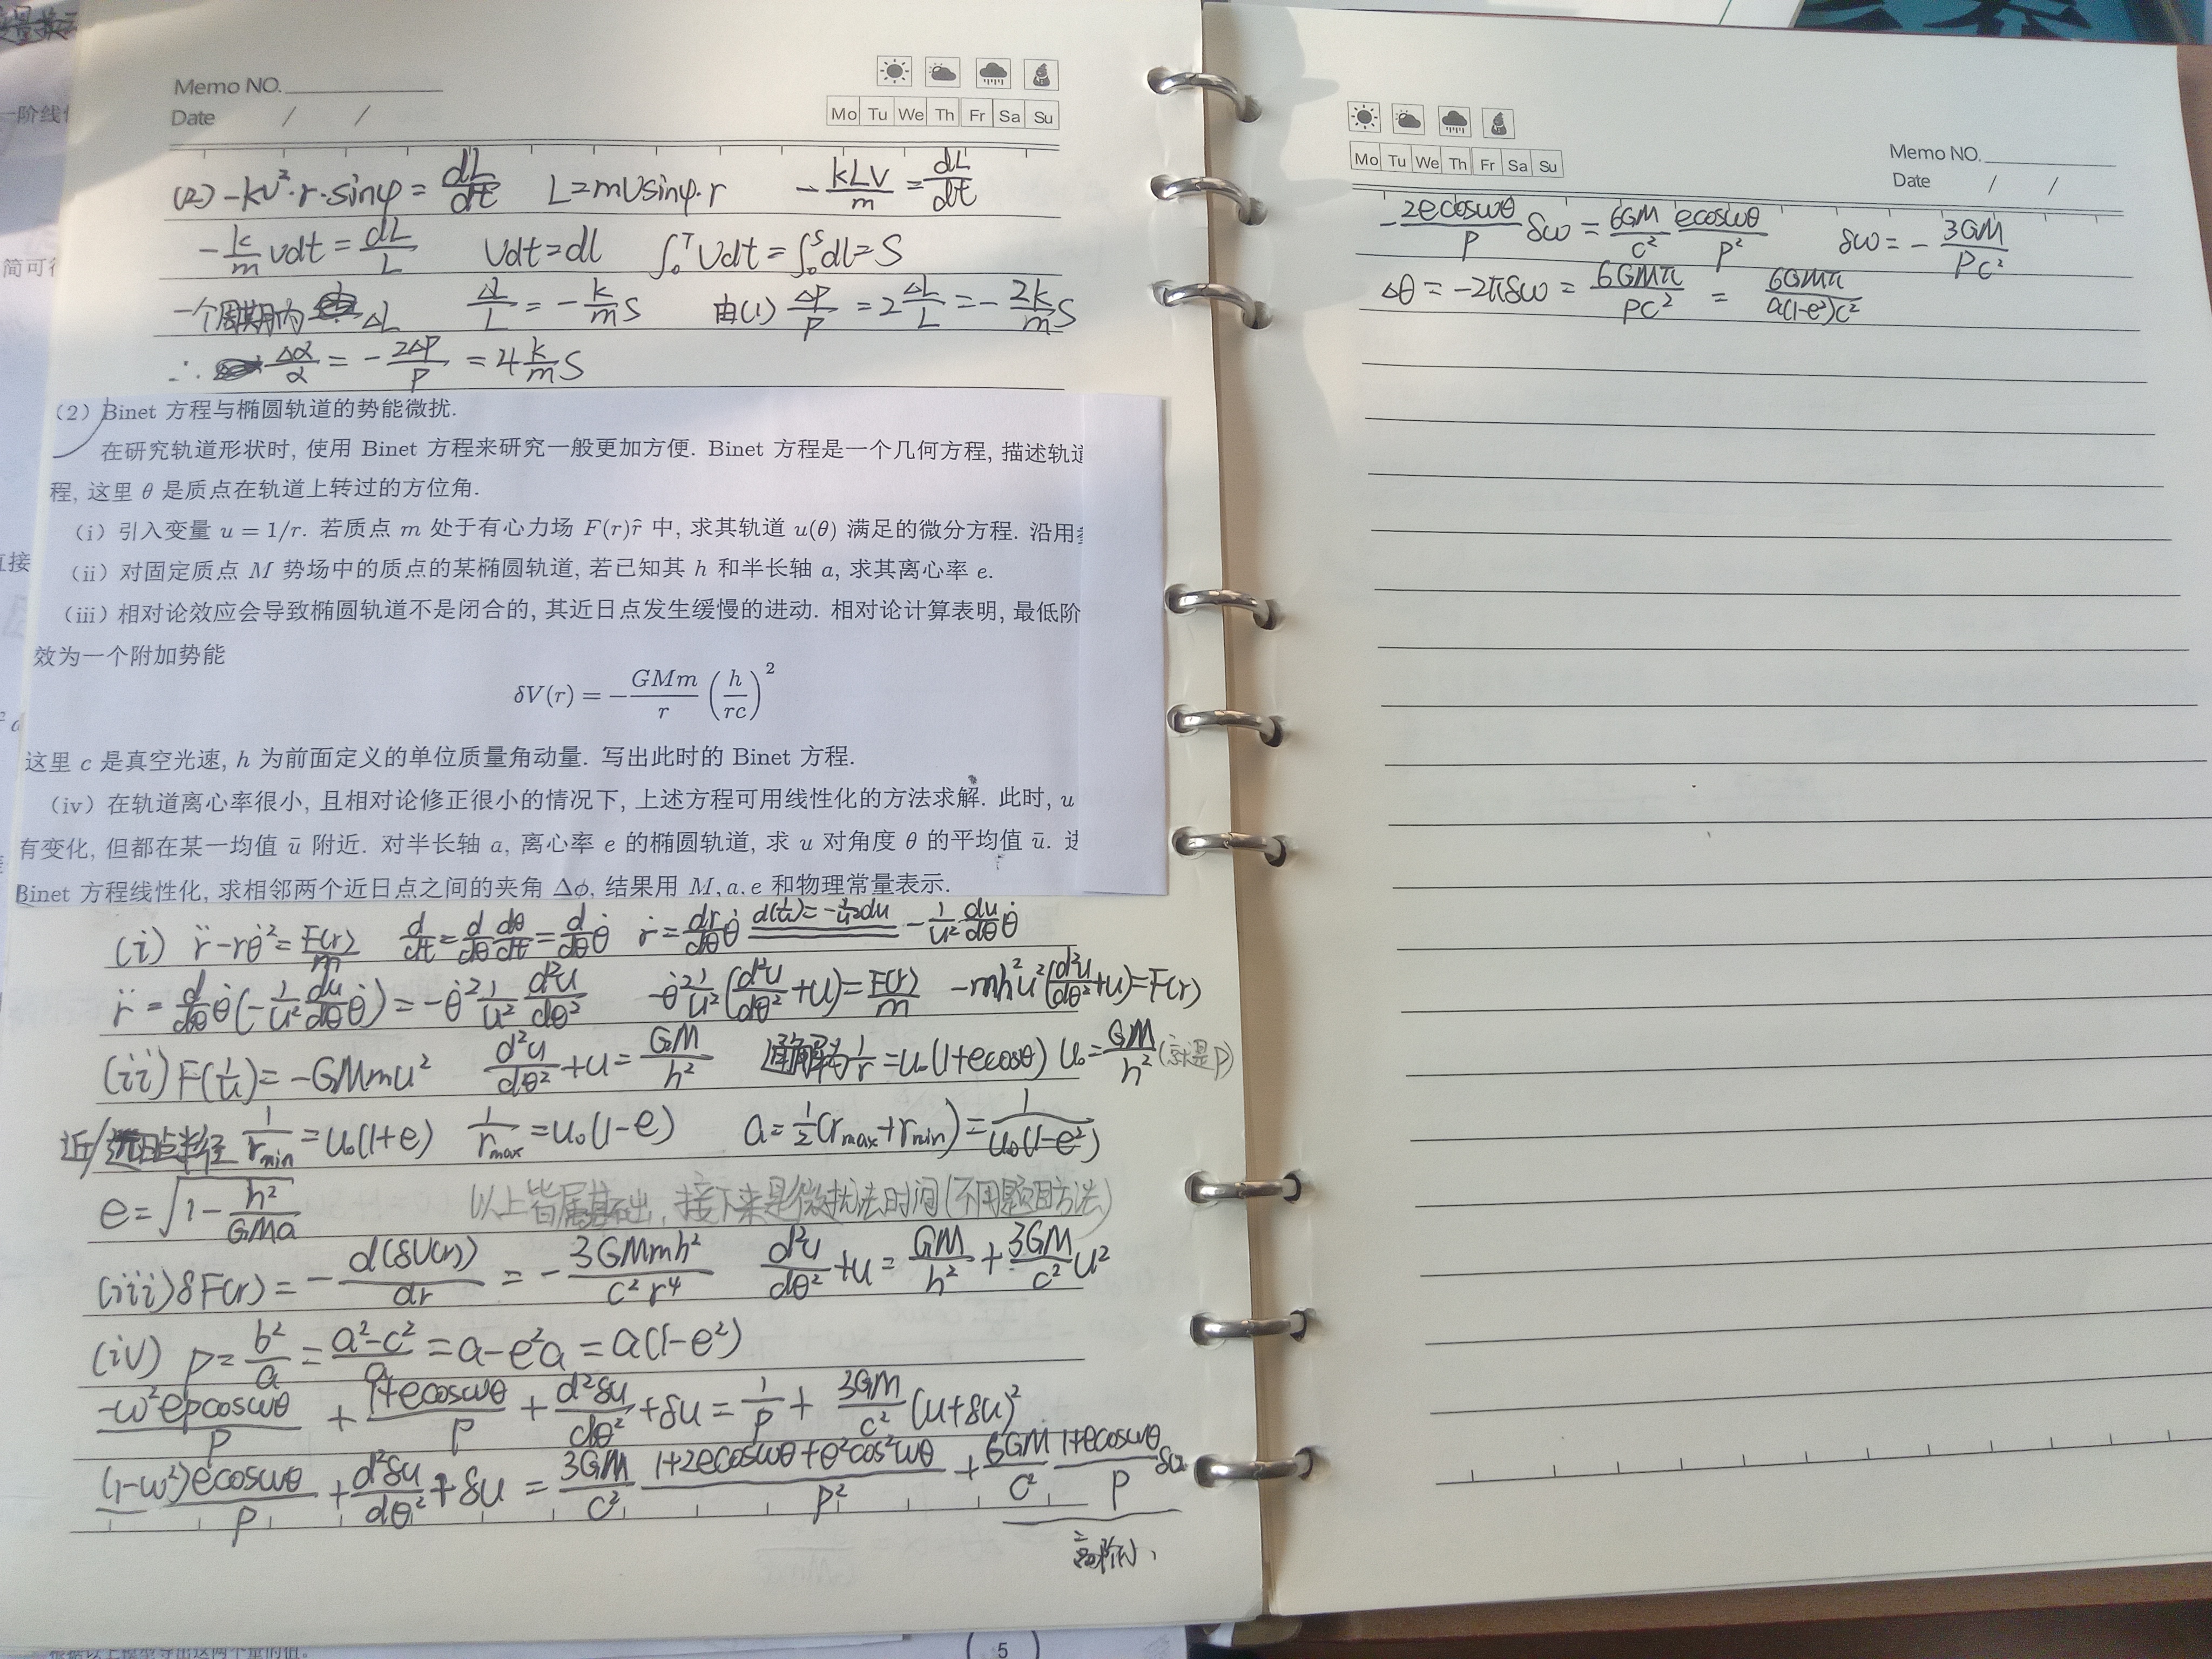 Memo NO.
Date / /
Mo Tu We Th Fr Sa Su
(2) -kv²·r·sinφ = dL/dt L=mvsinφ·r -kLv/m = dL/dt
-k/m vdt = dL/L vdt=dl ∫₀ᵀvdt=∫₀ˢdl=S
一个周期内 ΔL ΔL/L = -k/m S 由(1) Δp/p = 2ΔL/L = -2k/m S
∴ Δα/α = -2Δp/p = 4k/m S
(2) Binet 方程与椭圆轨道的势能微扰.
在研究轨道形状时, 使用 Binet 方程来研究一般更加方便. Binet 方程是一个几何方程, 描述轨道
程, 这里 θ 是质点在轨道上转过的方位角.
(i) 引入变量 u = 1/r. 若质点 m 处于有心力场 F(r)r̂ 中, 求其轨道 u(θ) 满足的微分方程. 沿用
(ii) 对固定质点 M 势场中的质点的某椭圆轨道, 若已知其 h 和半长轴 a, 求其离心率 e.
(iii) 相对论效应会导致椭圆轨道不是闭合的, 其近日点发生缓慢的进动. 相对论计算表明, 最低阶
效为一个附加势能
δV(r) = -GMm/r (h/rc)²
这里 c 是真空光速, h 为前面定义的单位质量角动量. 写出此时的 Binet 方程.
(iv) 在轨道离心率很小, 且相对论修正很小的情况下, 上述方程可用线性化的方法求解. 此时, u
有变化, 但都在某一均值 ū 附近. 对半长轴 a, 离心率 e 的椭圆轨道, 求 u 对角度 θ 的平均值 ū. 进
Binet 方程线性化, 求相邻两个近日点之间的夹角 Δϕ, 结果用 M, a, e 和物理常量表示.
(i) r̈-rθ̇²=F(r)/m d/dt=d/dθ dθ/dt=d/dθ θ̇ ṙ=dr/dθ θ̇ d(1/u)=-1/u²du -1/u² du/dθ θ̇
r̈=d/dθ θ̇(-1/u² du/dθ θ̇)=-θ̇² 1/u² d²u/dθ² -θ̇² 1/u²(d²u/dθ²+u)=F(r)/m -mh²u²(d²u/dθ²+u)=F(r)
(ii) F(1/u)=-GMmu² d²u/dθ²+u=GM/h² 通解为1/r=u₀(1+ecosθ) u₀=GM/h² (就是p)
近/远日点半径 1/r_min=u₀(1+e) 1/r_max=u₀(1-e) a=1/2(r_max+r_min)=1/u₀(1-e²)
e=√(1-h²/GMa) 以上皆属基础, 接下来是微扰法时间(不用题目方法)
(iii) δF(r)=-d(δV(r))/dr=-3GMmh²/c²r⁴ d²u/dθ²+u=GM/h²+3GM/c² u²
(iv) p=b²/a=a²-c²/a=a-e²a=a(1-e²)
-ω²epcosωθ/p + 1+ecosωθ/p + d²δu/dθ²+δu=1/p+3GM/c²(u+δu)²
(1-ω²)ecosωθ/p + d²δu/dθ²+δu=3GM/c² 1+2ecosωθ+e²cos²ωθ/p² + 6GM/c² 1+ecosωθ/p δu
高阶小
Mo Tu We Th Fr Sa Su
Memo NO.
Date / /
-2ecosωθ/p δω=6GM/c² ecosωθ/p² δω=-3GM/pc²
Δθ=-2πδω=6GMπ/pc²=6GMπ/a(1-e²)c²
5